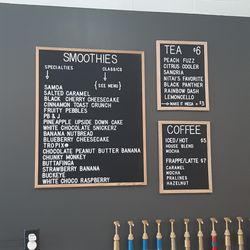 SMOOTHIES
SPECIALTIES
CLASSICS
{SEE MENU}
SAMOA
SALTED CARAMEL
BLACK CHERRY CHEESECAKE
CINNAMON TOAST CRUNCH
FRUITY PEBBLES
PB & J
PINEAPPLE UPSIDE DOWN CAKE
WHITE CHOCOLATE SNICKERZ
BANANA NUTBREAD
BLUEBERRY CHEESECAKE
TROPIX
CHOCOLATE PEANUT BUTTER BANANA
CHUNKY MONKEY
BUTTAFINGA
STRAWBERRY BANANA
BUCKEYE
WHITE CHOCO RASPBERRY
TEA $6
PEACH FUZZ
CITRUS COOLER
SANGRIA
NITA'S FAVORITE
BLACK PANTHER
RAINBOW DASH
LEMONCELLO
MAKE IT MEGA +$3
COFFEE
ICED/HOT $5
HOUSE BLEND
MOCHA
FRAPPE/LATTE $7
CARAMEL
MOCHA
PRALINES
HAZELNUT